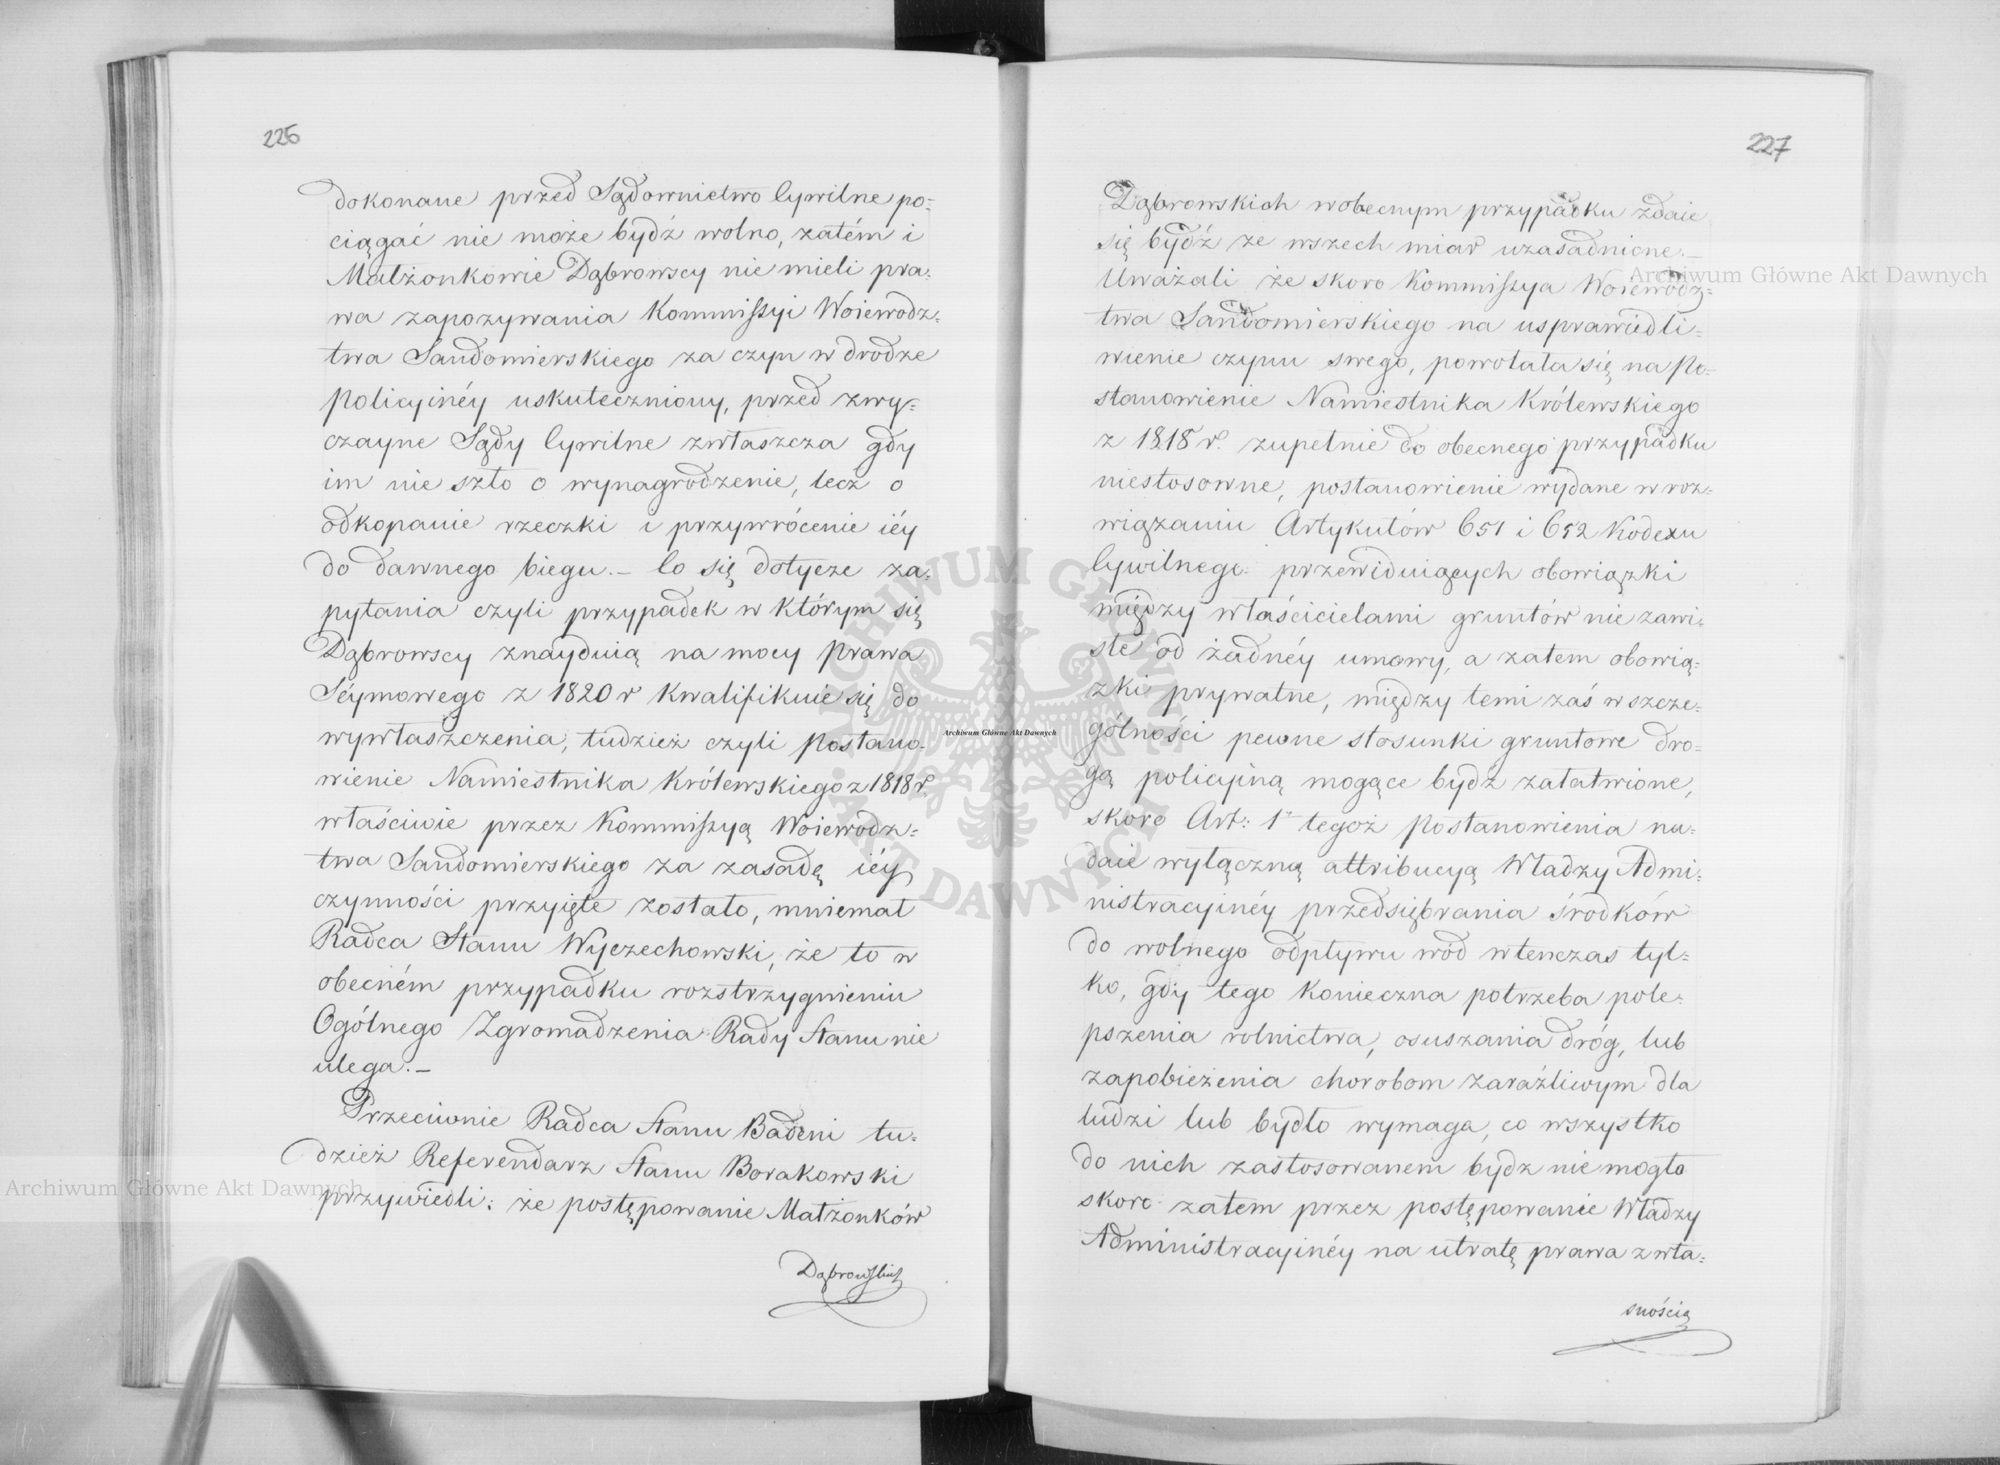 226
dokonane przed Sądownictwo Cywilne po=
ciągać nie może bydź wolno, zatém i
Małżonkowie Dąbrowscy nie mieli pra=
wa zapozywania Kommissyi Woiewodz=
twa Sandomierskiego za czyn w drodze
Policyinéy uskuteczniony, przed zwy=
czayne Sądy Cywilne zwłaszcza gdy
im nie szło o wynagrodzenie, lecz o
odkopanie rzeczki i przywrócenie iéy
do dawnego biegu.— Co się dotycze za=
pytania czyli przypadek w którym się
Dąbrowscy znayduią na mocy Prawa
Séymowego z 1820 r kwalifikuie się do
wywłaszczenia, tudzież czyli Postano=
wienie Namiestnika Królewskiego z 1818 r.
właściwie przez Kommissyą Woiewodz=
twa Sandomierskiego za zasadę iéy
czynności przyięte zostało, mniemał
Radca Stanu Wyczechowski, że to w
obecném przypadku rozstrzygnieniu
Ogólnego Zgromadzenia Rady Stanu nie
ulega.—
Przeciwnie Radca Stanu Badeni tu=
dzież Referendarz Stanu Borakowski
przywiedli: że postępowanie Małżonków
Dąbrowskich
227
Dąbrowskich w obecnym przypadku zdaie
się bydź ze wszech miar uzasadnione.—
Uważali że skoro Kommissya Woiewodz=
twa Sandomierskiego na usprawiedli=
wienie czynu swego, powołała się na Po=
stanowienie Namiestnika Królewskiego
z 1818 r. zupełnie do obecnego przypadku
niestosowne, postanowienie wydane w roz=
wiązaniu Artykułów 651 i 652 Kodexu
Cywilnego przewiduiących obowiązki
między właścicielami gruntów nie zawi=
słe od żadnéy umowy, a zatem obowią=
zki prywatne, między temi zaś w szcze=
gólności pewne stosunki gruntowe dro=
gą policyiną mogące bydź załatwione,
skoro Art: 1r tegoż Postanowienia na=
daie wyłączną attribucyą Władzy Admi=
nistracyinéy przedsiębrania środków
do wolnego odpływu wód wtenczas tyl=
ko, gdy tego konieczna potrzeba pole=
pszenia rolnictwa, osuszania dróg, lub
zapobieżenia chorobom zaraźliwym dla
ludzi lub bydło wymaga, co wszystko
do nich zastosowanem bydz nie mogło
skoro zatem przez postępowanie Władzy
Administracyinéy na utratę prawa z wła=
snością
Archiwum Główne Akt Dawnych
Archiwum Główne Akt Dawnych
Archiwum Główne Akt Dawnych
ARCHIWUM GŁÓWNE AKT DAWNYCH